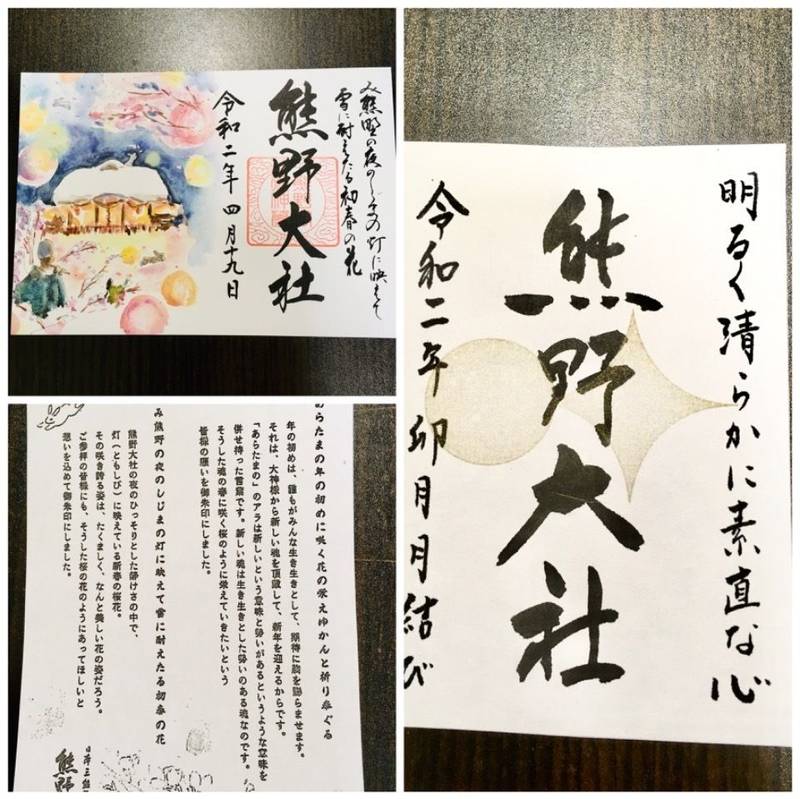 み熊野の夜のしじまの灯に映えて
雪に耐えたる初春の花
熊野大社
令和二年 四月十九日
明るく清らかに素直な心
熊野大社
令和二年 卯月 月結び
あらたまの年の初めに咲く花の栄えゆかんと祈り奉ぐる
年の初めは、誰もがみんな生き生きとして、期待に胸を踊らませます。
それは、大神様から新しい魂を頂戴して、新年を迎えるからです。
「あらたまの」のアラは新しいという意味と勢いがあるというような意味を
併せ持った言葉です。新しい魂は生き生きとした勢いのある魂なのです。
そうした魂の春に咲く桜のように栄えていきたいという
皆様の願いを御朱印にしました。
み熊野の夜のしじまの灯に映えて雪に耐えたる初春の花
熊野大社の夜のひっそりとした静けさの中で、
灯(ともしび)に映えている新春の桜花。
その咲き誇る姿は、たくましく、なんと美しい花の姿だろう。
ご参拝の皆様にも、そうした桜の花のようにあってほしいと
想いを込めて御朱印にしました。
日本三熊
熊野